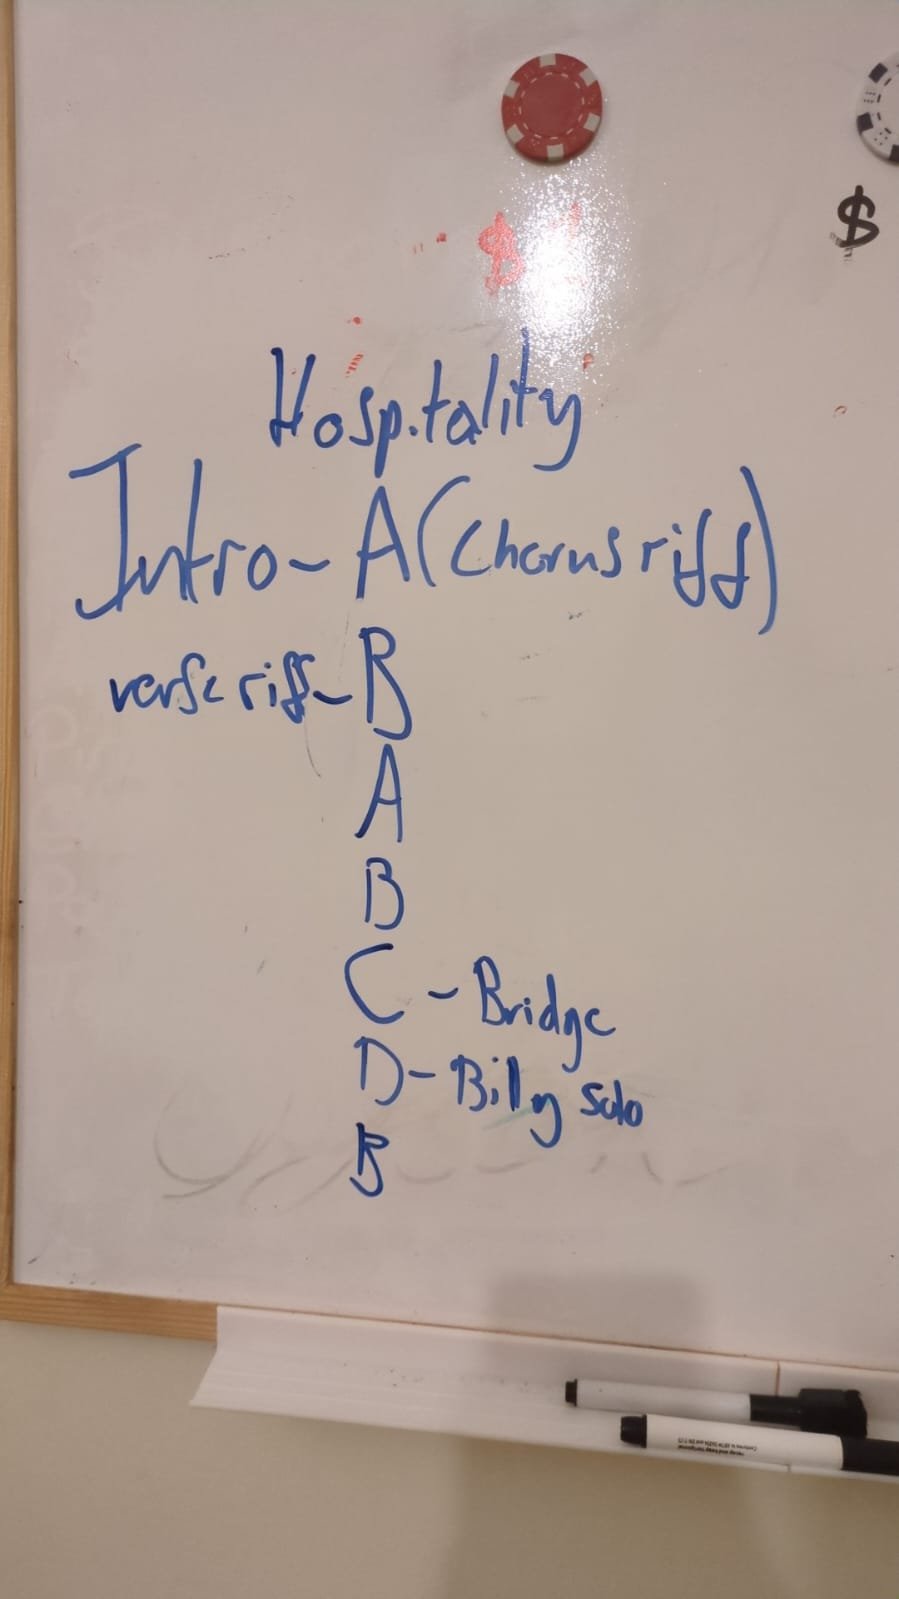 $
$
Hospitality
Intro - A (Chorus riff)
verse riff - B
A
B
C - Bridge
D - Billy solo
B